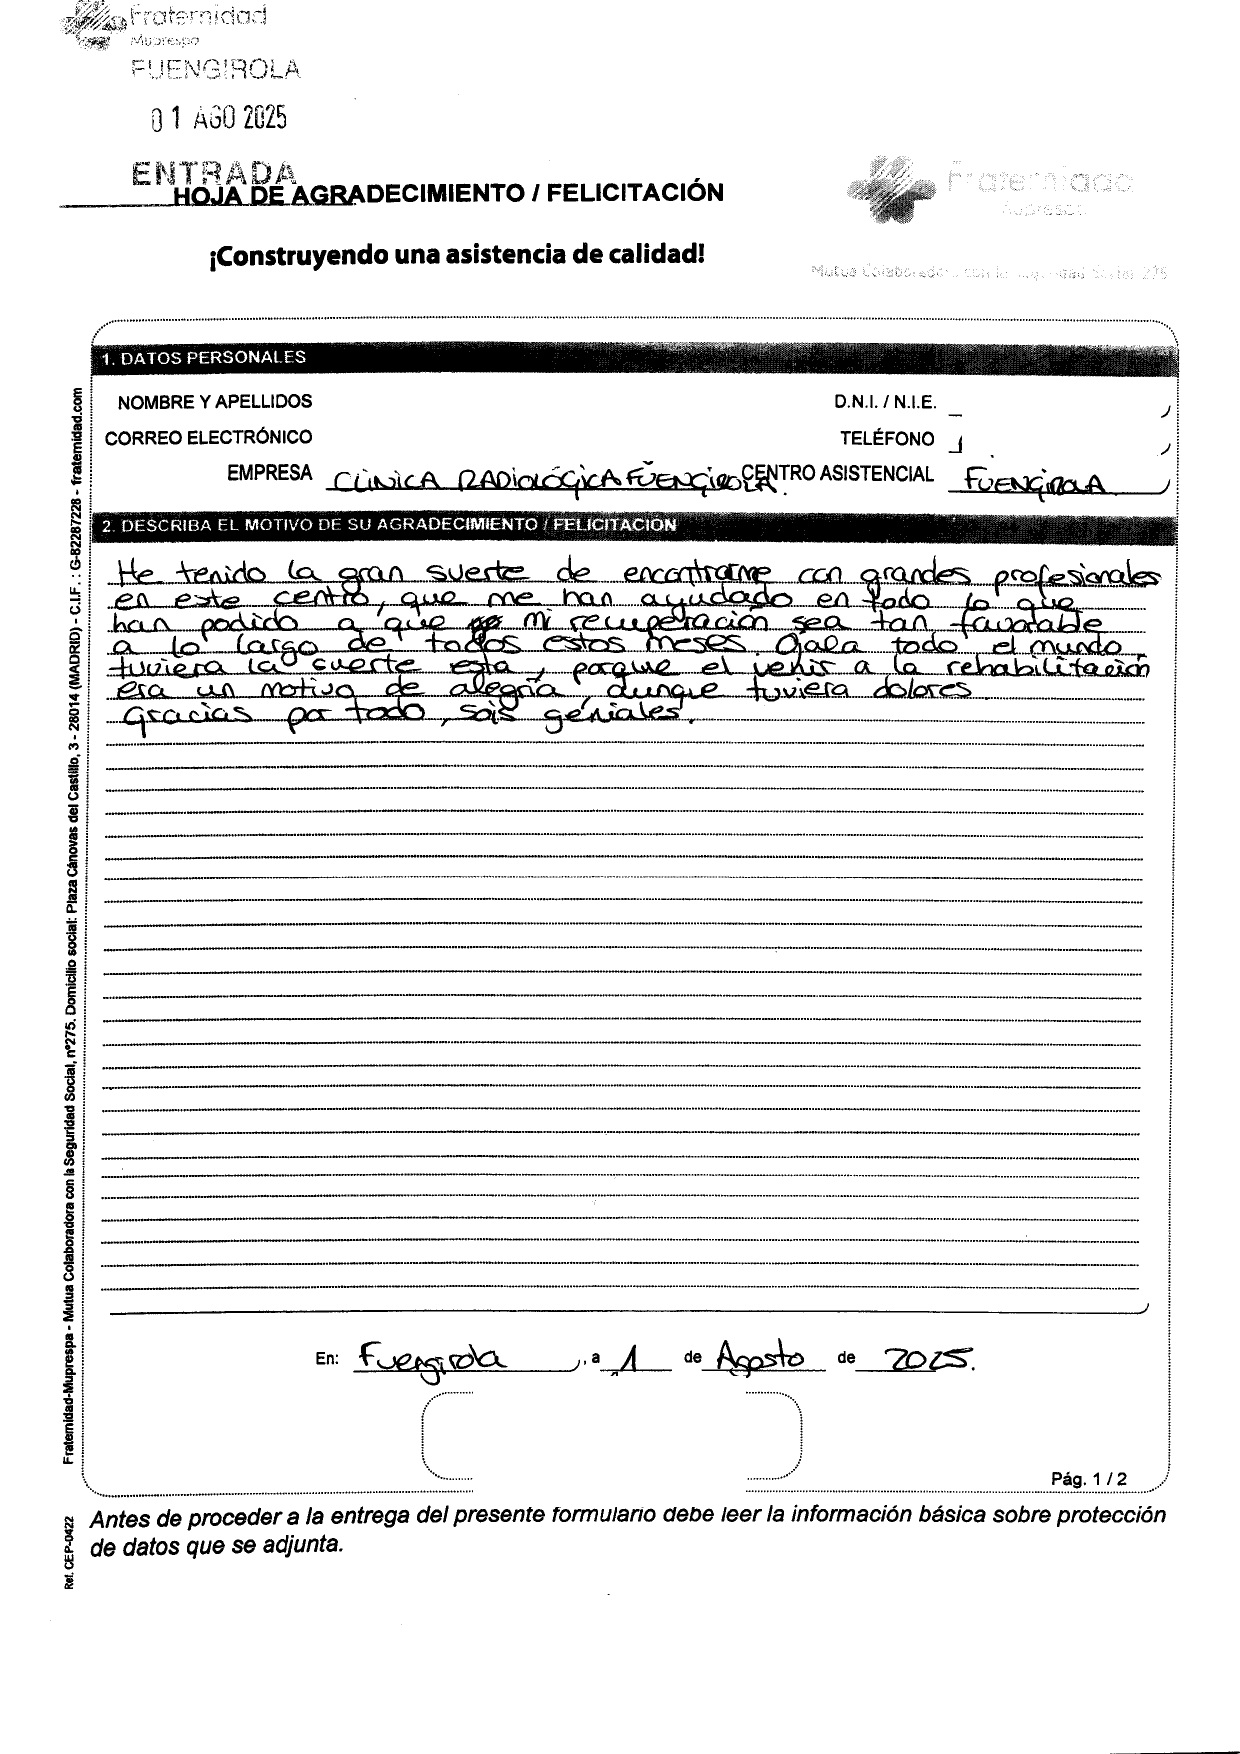 Fraternidad
Muprespa
FUENGIROLA
01 AGO 2025
ENTRADA
HOJA DE AGRADECIMIENTO / FELICITACIÓN
Fraternidad
Muprespa
¡Construyendo una asistencia de calidad!
Mutua Colaboradora con la Seguridad Social 275
1. DATOS PERSONALES
NOMBRE Y APELLIDOS D.N.I. / N.I.E.
CORREO ELECTRÓNICO TELÉFONO
EMPRESA CLÍNICA RADIOLÓGICA FUENGIROLA. CENTRO ASISTENCIAL FUENGIROLA
2. DESCRIBA EL MOTIVO DE SU AGRADECIMIENTO / FELICITACIÓN
He tenido la gran suerte de encontrarme con grandes profesionales
en este centro, que me han ayudado en todo lo que
han podido a que mi recuperación sea tan favorable
a lo largo de todos estos meses. Ojala todo el mundo
tuviera la suerte esta, porque el venir a la rehabilitación
era un motivo de alegría, aunque tuviera dolores
Gracias por todo, sois geniales.
En: Fuengirola, a 1 de Agosto de 2025.
Pág. 1 / 2
Antes de proceder a la entrega del presente formulario debe leer la información básica sobre protección
de datos que se adjunta.
Fraternidad-Muprespa - Mutua Colaboradora con la Seguridad Social, nº275. Domicilio social: Plaza Cánovas del Castillo, 3 - 28014 (MADRID) - C.I.F. : G-82287228 - fraternidad.com
Ref. CEP-0422